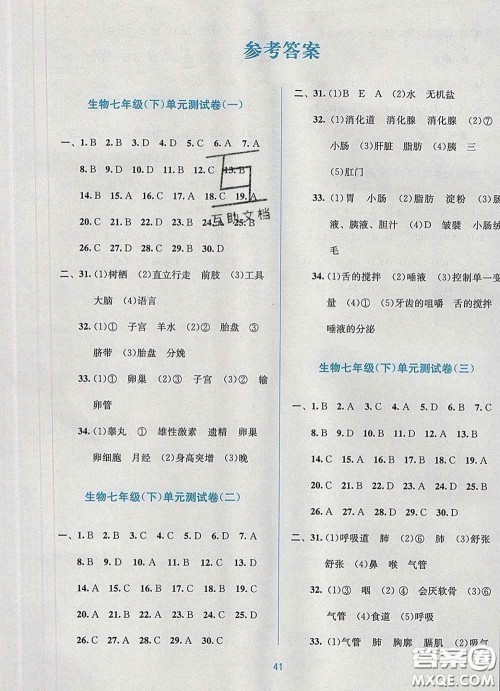 参考答案
生物七年级(下)单元测试卷(一)
一、1.B 2.B 3.D 4.D 5.C 6.A 7.A
8.B 9.D 10.D 11.D 12.C 13.B
14.B 15.B 16.A 17.A 18.C 19.A
20.C 21.B 22.D 23.D 24.A 25.B
26.C 27.B 28.B 29.B 30.D
二、31.(1)树栖 (2)直立行走 前肢 (3)工具
大脑 (4)语言
32.(1)① 子宫 羊水 (2)② 胎盘 (3)③
脐带 (3)胎盘 分娩
33.(1)① 卵巢 (2)③ 子宫 (3)② 输
卵管
34.(1)睾丸 ① 雄性激素 遗精 卵巢
卵细胞 月经 (2)身高突增 (3)晚
生物七年级(下)单元测试卷(二)
一、1.B 2.B 3.C 4.C 5.A 6.D 7.D
8.B 9.B 10.D 11.D 12.D 13.D
14.A 15.D 16.C 17.C 18.A 19.B
20.A 21.A 22.C 23.A 24.D 25.D
26.C 27.B 28.A 29.A 30.C
二、31.(1)B E A (2)水 无机盐
32.(1)消化道 消化腺 消化腺 (2)⑥
小肠 (3)肝脏 脂肪 (4)胰 三
(5)肛门
33.(1)胃 小肠 (2)脂肪 淀粉 (3)肠
液、胰液、胆汁 (4)D 皱襞 小肠绒
毛
34.(1)舌的搅拌 (2)唾液 (3)控制单一变
量 (4)① (5)牙齿的咀嚼 舌的搅拌
唾液的分泌
生物七年级(下)单元测试卷(三)
一、1.B 2.C 3.A 4.D 5.D 6.B
8.D 9.B 10.B 11.D 12.B 13.D
14.A 15.C 16.D 17.C 18.A
20.A 21.D 22.A 23.A 24.C
26.D 27.C 28.A 29.D 30.D
二、31.(1)呼吸道 肺 (2)⑥ 肺 (3)舒
舒张 (4)鼻 喉 气管
32.(1)③ 咽 (2)② 会厌软骨 (3)⑥
气管 (4)胸廓 (5)呼吸
33.(1)气管 肺 胸廓 膈肌 (2)肺
41
互助文档
答案圈
MXQE.COM